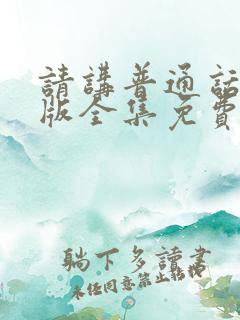 請講普通話
版全集免費
躺下多讀書
未任同意禁止轉樓